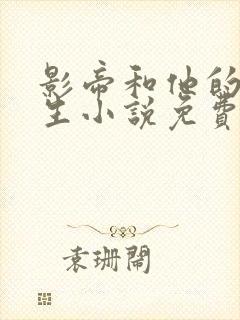 影帝和他的
生小說免費
袁珊閙